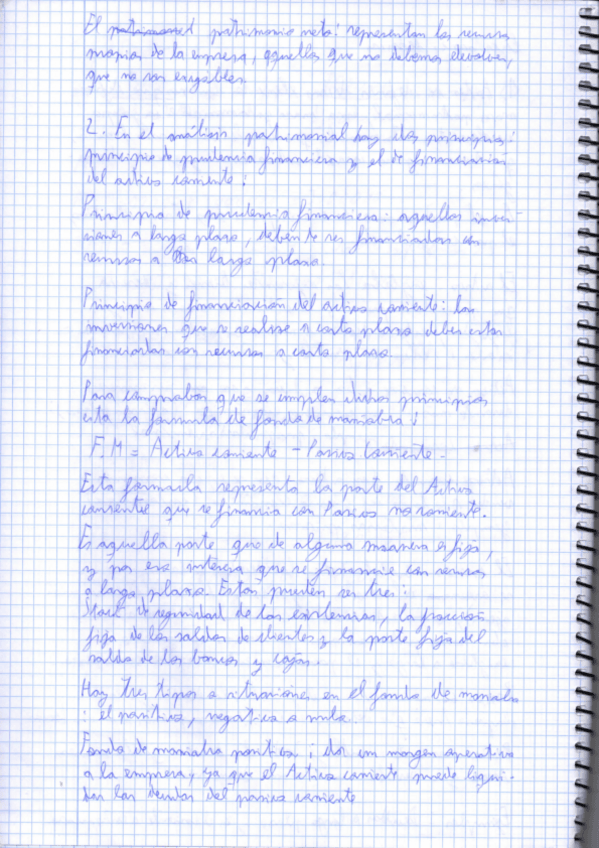 El patrimonio neto: representan los recursos
propios de la empresa, aquellos que no debemos devolver,
que no son exigibles.
2. En el análisis patrimonial hay dos principios:
principio de prudencia financiera y el de financiación
del activo corriente:
Principio de prudencia financiera: aquellas inver-
siones a largo plazo, deben de ser financiadas con
recursos a largo plazo.
Principio de financiación del activo corriente: las
inversiones que se realice a corto plazo deben estar
financiadas con recursos a corto plazo.
Para comprobar que se cumplen dichos principios
esta la formula de fondo de maniobra:
F.M = Activo corriente - Pasivo Corriente.
Esta formula representa la parte del Activo
corriente que se financia con Pasivos no corriente.
Es aquella parte que de alguna manera es fija,
y por eso interesa que se financie con recursos
a largo plazo. Estos pueden ser tres:
Stock de seguridad de las existencias, la fracción
fija de los saldos de clientes y la parte fija del
saldo de los bancos y cajas.
Hay tres tipos o situaciones en el fondo de maniobra
: el positivo, negativo o nulo.
Fondo de maniobra positivo: dar un margen operativo
a la empresa, ya que el Activo corriente puede liqui-
dar las deudas del pasivo corriente